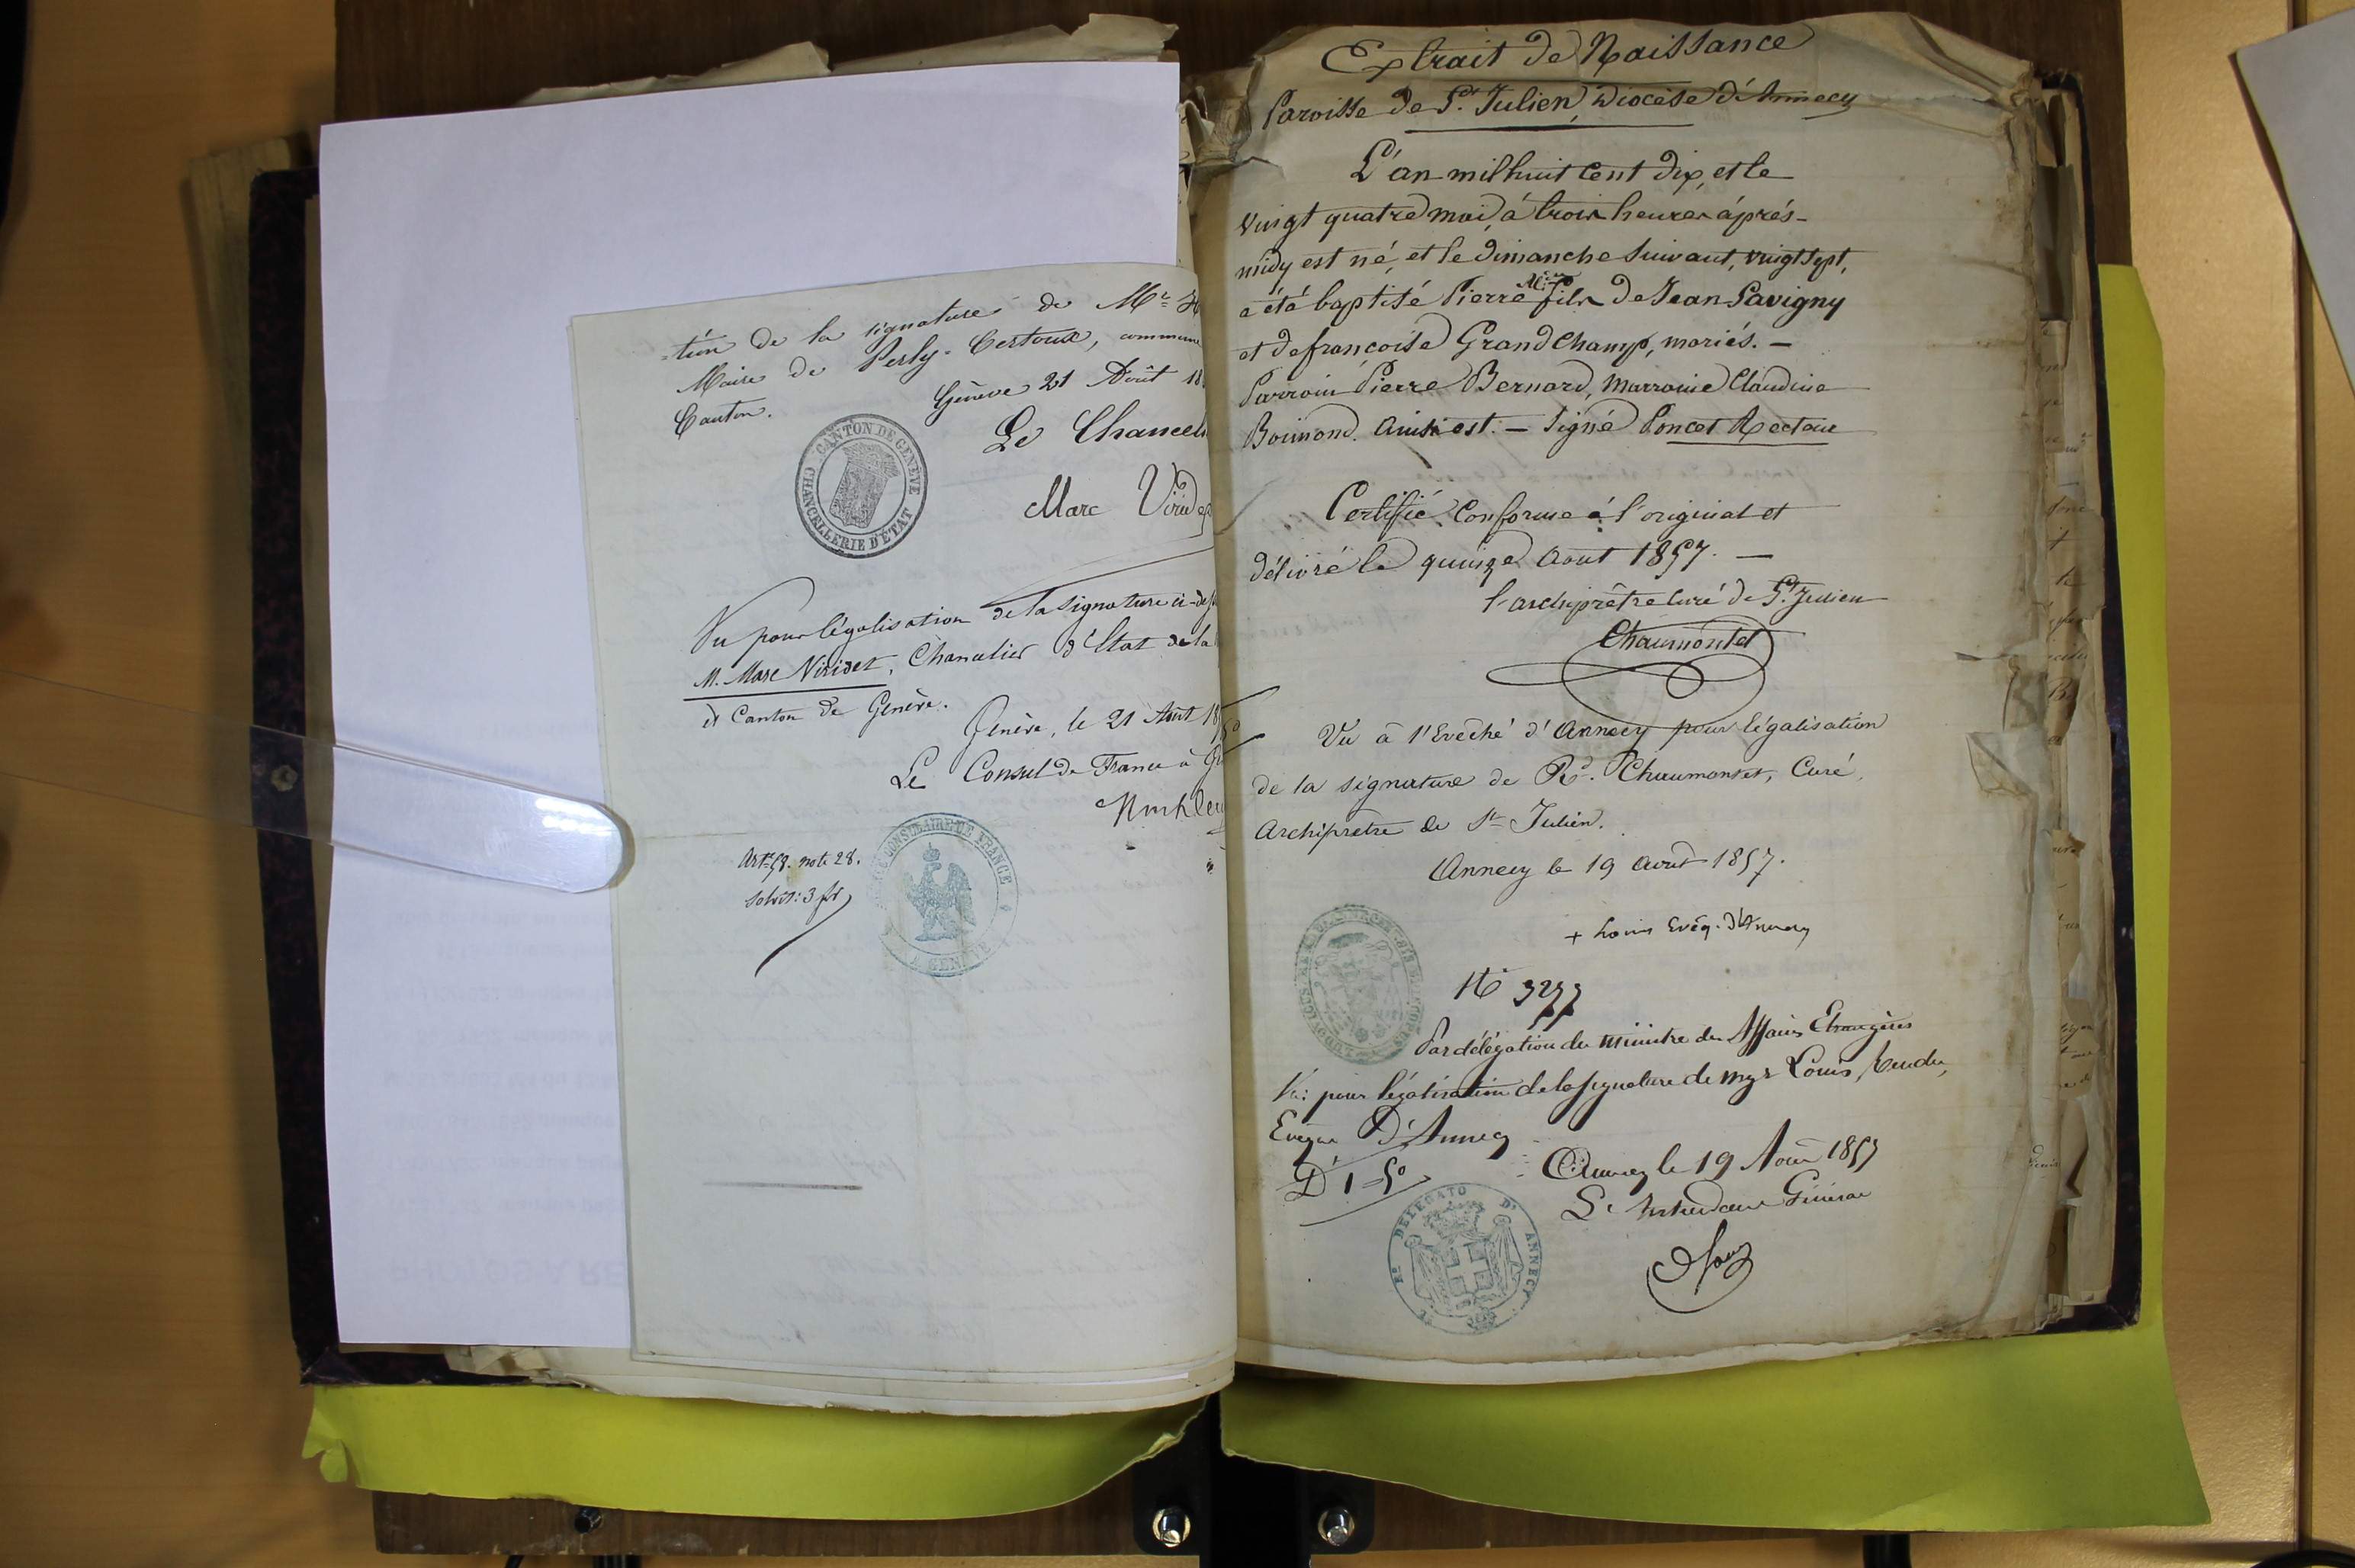 -tion de la signature de Mr
Maire de Perly-Certoux, commune
Canton.
Genève 21 Août 18
Le Chancel
CANTON DE GENEVE
CHANCELLERIE D'ETAT
Marc Virid
Vu pour légalisation de la signature ci-des
M. Marc Viridet, Chancelier d'Etat de la
et Canton de Genève.
Genève, le 21 Août 18
Le Consul de France à
CONSULAIRE DE FRANCE
A GENEVE
Art. 58. note 28.
Extrait de Naissance
Paroisse de St. Julien, Diocèse d'Annecy
L'an mil huit Cent dix, et le
vingt quatre mai, à trois heures áprés-
midy est né, et le dimanche suivant, vingt sept,
a été baptisé Pierre fils de Jean Savigny
et de françoise Grand Champ, mariés. -
Parrain Pierre Bernard, Marraine Claudine
Boimond. Ainsi est. - Signé Poncet Recteur
Certifié Conforme à l'original et
délivré le quinze Aout 1857. -
l'archiprêtre Curé de St. Julien
Chaumontet
Vu à l'Evêché d'Annecy pour légalisation
de la signature de Rd. Chaumontet, Curé,
Archiprêtre de St Julien.
Annecy le 19 Aout 1857.
+ Louis Evêq. d'Annecy
No 3277
Par délégation du Ministre des Affaires Etrangères
Vu: pour légalisation de la signature de Mgr Louis Rendu,
Evêque D'Annecy
Annecy le 19 Août 1857
L'Intendant Général
DELEGATO D'ANNECY